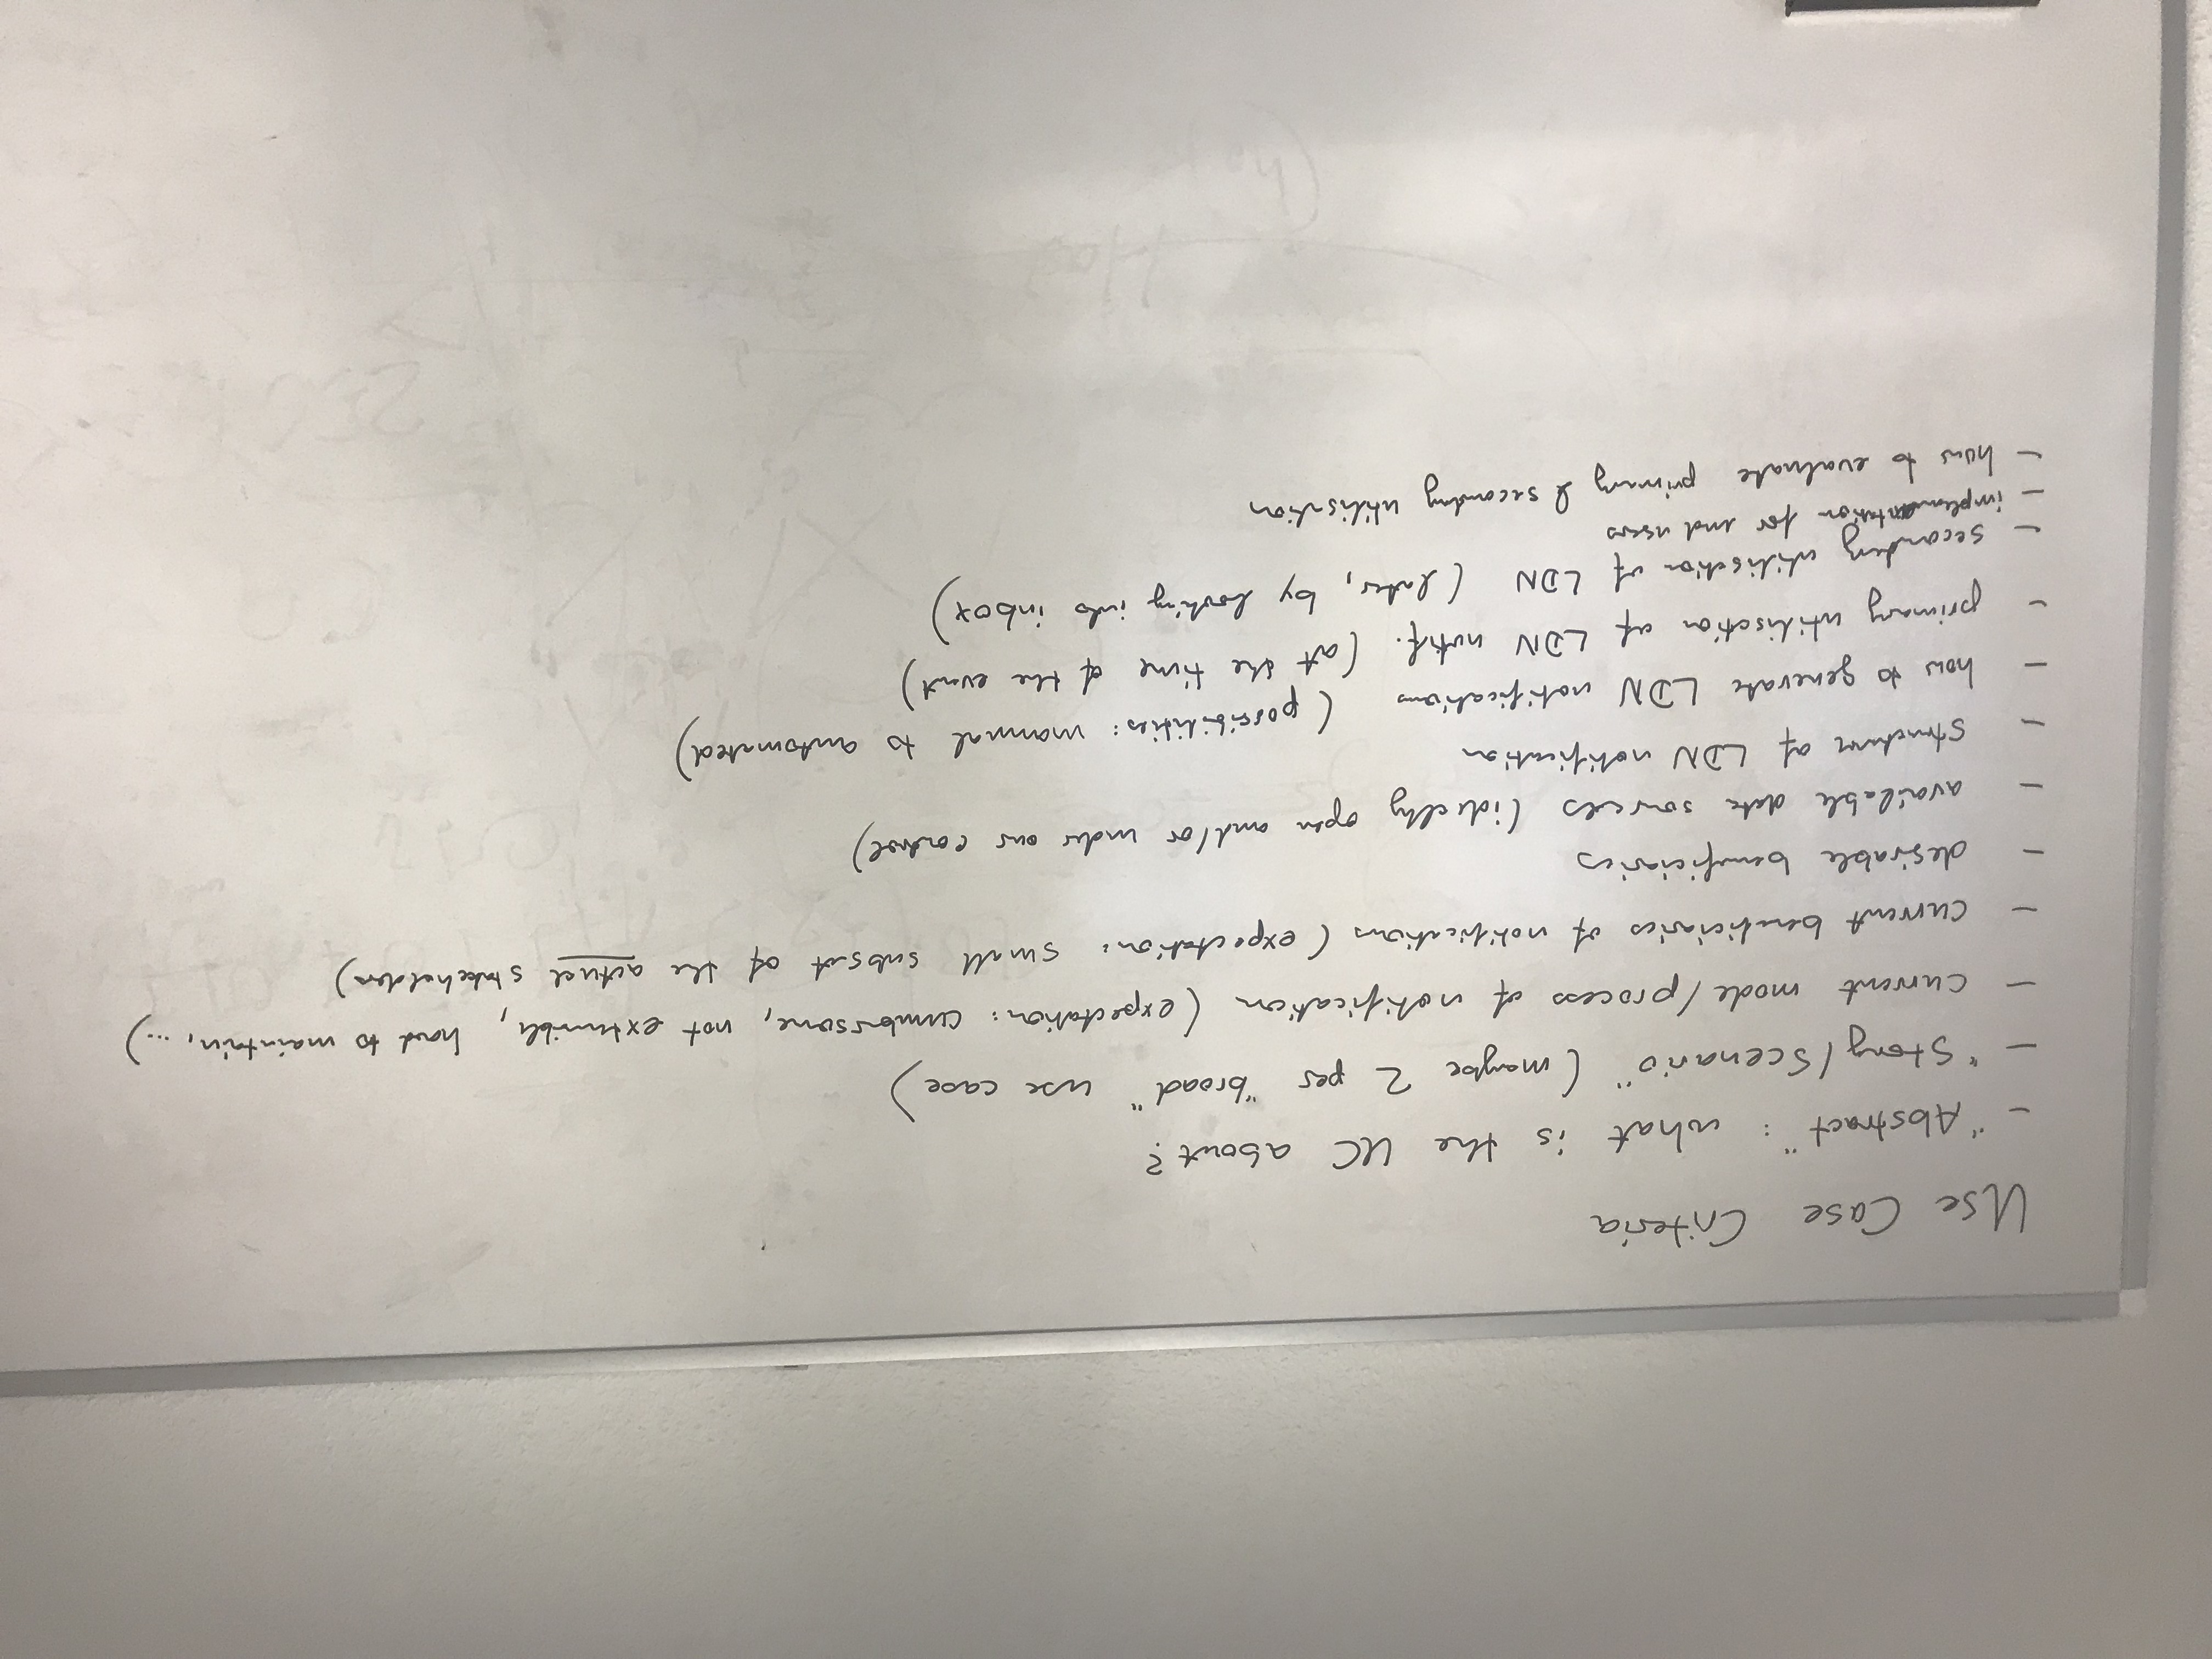 Use Case Criteria
- "Abstract": what is the UC about?
- "Story/Scenario" (maybe 2 per "broad" use case)
- current mode/process of notification (expectation: cumbersome, not extensible, hard to maintain, ...)
- current beneficiaries of notifications (expectation: small subset of the actual stakeholders)
- desirable beneficiaries
- available data sources (ideally open and/or under our control)
- structure of LDN notification
- how to generate LDN notifications (possibilities: manual to automated)
- primary utilisation of LDN notif. (at the time of the event)
- secondary utilisation of LDN (later, by looking into inbox)
- implementation for end users
- how to evaluate primary & secondary utilisation